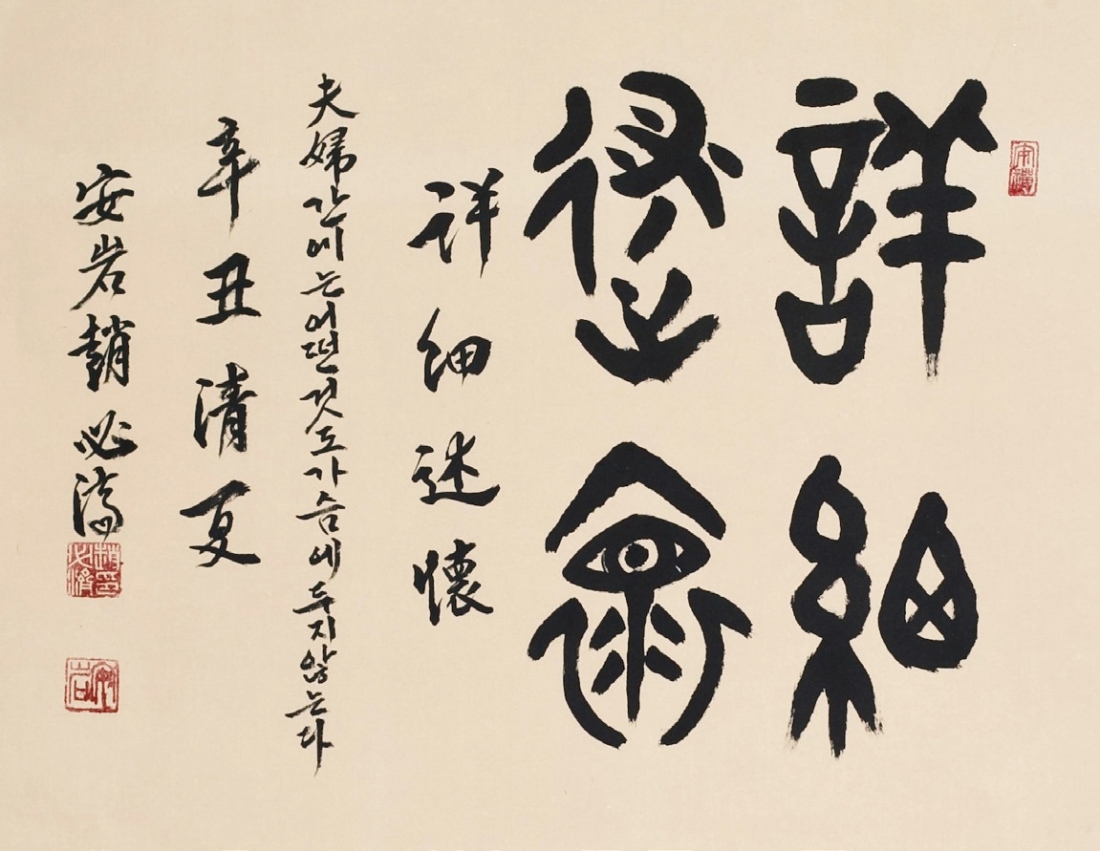 詳細
述懷
詳細述懷
夫婦간에는어떤것도가슴에두지않는다
辛丑清夏
安岩趙必濟
趙印必濟
安岩